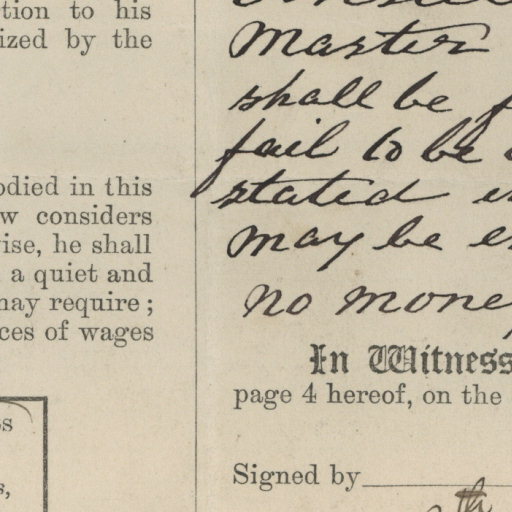 tion to his
ized by the
odied in this
w considers
rise, he shall
a quiet and
may require;
ces of wages
ss
s,
Master
shall be
fail to be
stated
may be
no money
In Witness
page 4 hereof, on the
Signed by
th